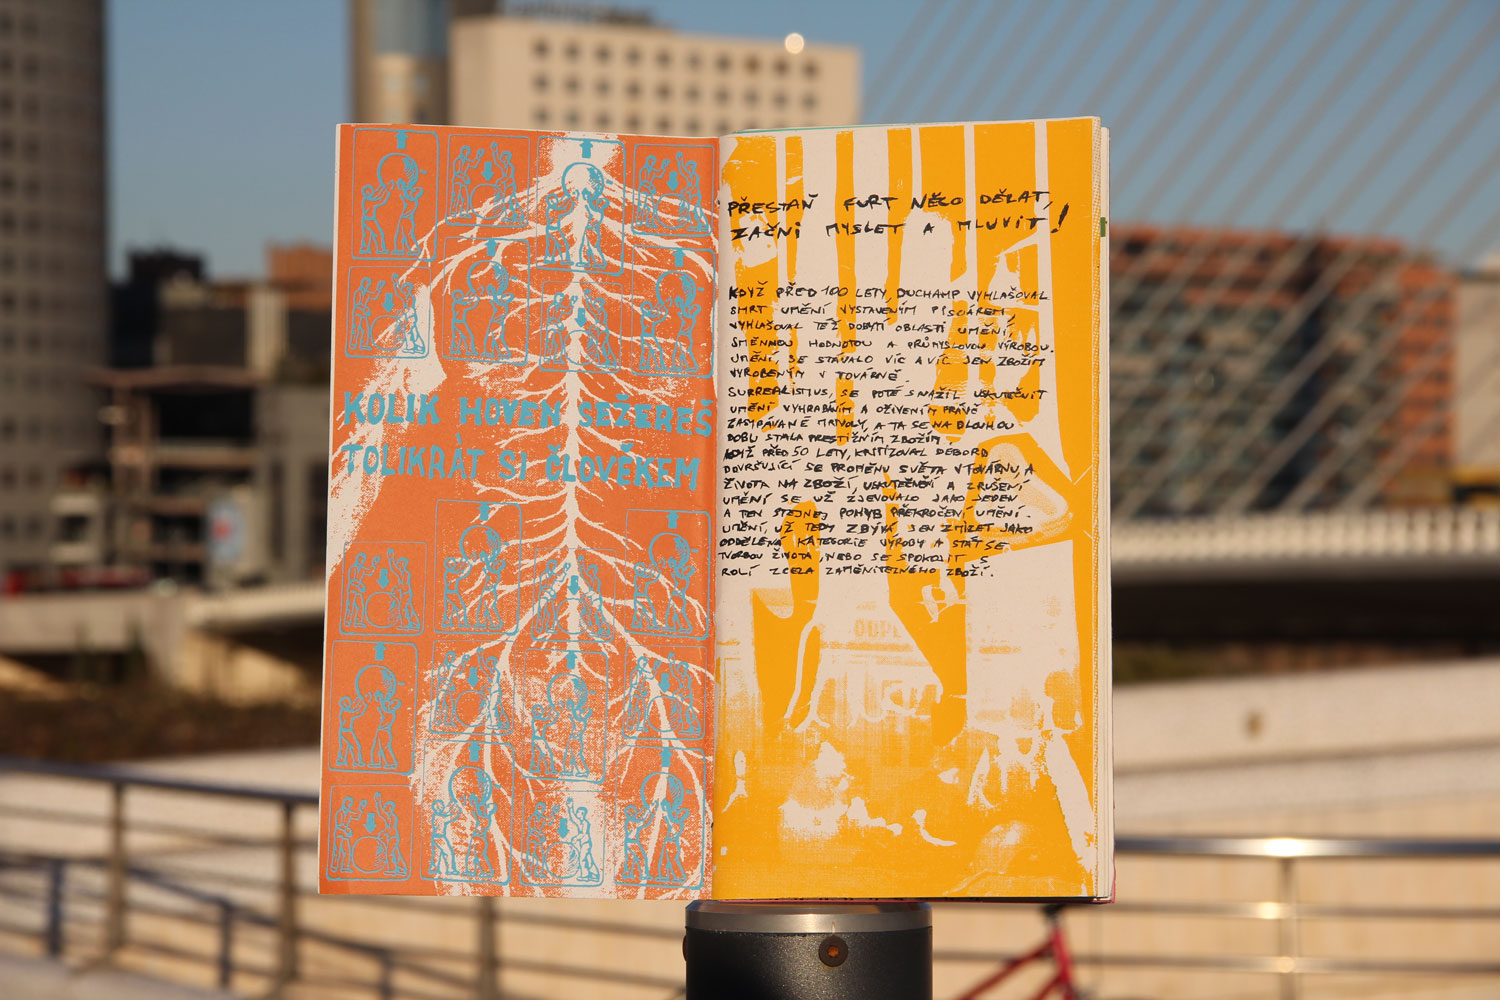 KOLIK HOVEN SEŽEREŠ
TOLIKRÁT SI ČLOVĚKEM
PŘESTAŇ FURT NĚCO DĚLAT,
ZAČNI MYSLET A MLUVIT!
KDYŽ PŘED 100 LETY, DUCHAMP VYHLAŠOVAL
SMRT UMĚNÍ VYSTAVENÝM PISOÁREM,
VYHLAŠOVAL TÉŽ DOBYTÍ OBLASTI UMĚNÍ,
SMĚNNOU HODNOTOU A PRŮMYSLOVOU VÝROBOU.
UMĚNÍ, SE STÁVALO VÍC A VÍC JEN ZBOŽÍM
VYROBENÝM V TOVÁRNĚ.
SURREALISMUS, SE POTÉ SNAŽIL USKUTEČNIT
UMĚNÍ VYHRABÁNÍM A OŽIVENÍM PRÁVĚ
ZASYPÁVANÉ MRTVOLY, A TA SE NA DLOUHOU
DOBU STALA PRESTIŽNÍM ZBOŽÍM.
KDYŽ PŘED 50 LETY, KRITIZOVAL DEBORD
DOVRŠUJÍCÍ SE PROMĚNU SVĚTA V TOVÁRNU, A
ŽIVOTA NA ZBOŽÍ, USKUTEČNĚNÍ A ZRUŠENÍ
UMĚNÍ SE UŽ ZJEVOVALO JAKO JEDEN
A TEN STEJNEJ POHYB PŘEKROČENÍ UMĚNÍ.
UMĚNÍ, UŽ TEDY ZBÝVÁ JEN ZMIZET JAKO
ODDĚLENÁ KATEGORIE VÝROBY A STÁT SE
TVORBOU ŽIVOTA, NEBO SE SPOKOJIT S
ROLÍ ZCELA ZAMĚNITELNÉHO ZBOŽÍ.